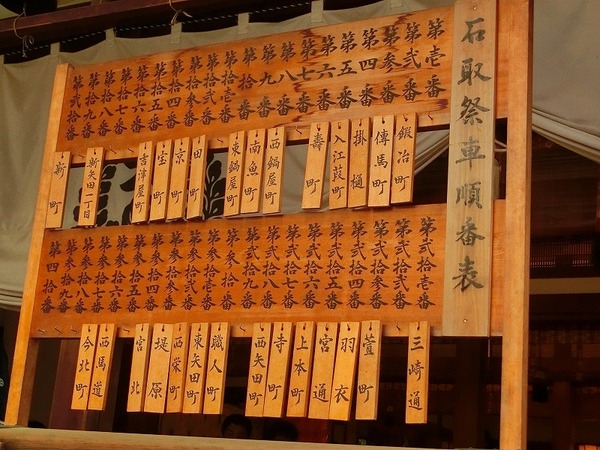 石取祭車順番表
第壱番
第弐番
第参番
第四番
第五番
第六番
第七番
第八番
第九番
第拾番
第拾壱番
第拾弐番
第拾参番
第拾四番
第拾五番
第拾六番
第拾七番
第拾八番
第拾九番
第弐拾番
鍛冶町
傳馬町
掛樋
入江葭町
壽町
西鍋屋町
南魚町
東鍋屋町
田町
京町
宝町
吉津屋町
新矢田一丁目
新町
第弐拾壱番
第弐拾弐番
第弐拾参番
第弐拾四番
第弐拾五番
第弐拾六番
第弐拾七番
第弐拾八番
第弐拾九番
第参拾番
第参拾壱番
第参拾弐番
第参拾参番
第参拾四番
第参拾五番
第参拾六番
第参拾七番
第参拾八番
第参拾九番
第四拾番
三崎通
萱町
羽衣
宮通
上本町
寺町
西矢田町
職人町
東矢田町
西栄町
堤原
宮北
西馬道
今北町